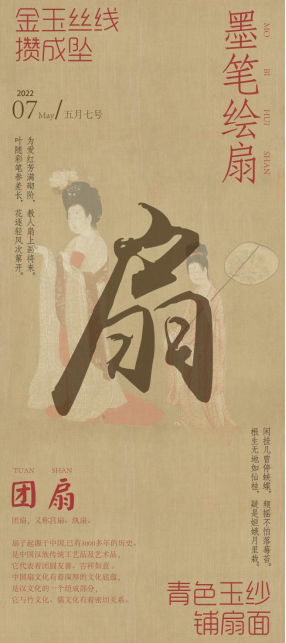 金玉丝线
攒成坠
墨笔绘扇
MO BI HUI SHAN
2022
07 May/五月七号
为爱红芳满砌阶，教人扇上画将来。
叶随彩笔参差长，花逐轻风次第开。
扇
闲挂几曾停蛱蝶，频摇不怕落莓苔。
根生无地如仙桂，疑是姮娥月里栽。
TUAN SHAN
团扇
团扇，又称宫扇、纨扇。
扇子起源于中国,已有3000多年的历史。
是中国汉族传统工艺品及艺术品，
它代表着团圆友善、吉祥如意。
中国扇文化有着深厚的文化底蕴，
是民族文化的一个组成部分，
它与竹文化、儒文化有着密切关系。
青色玉纱
铺扇面